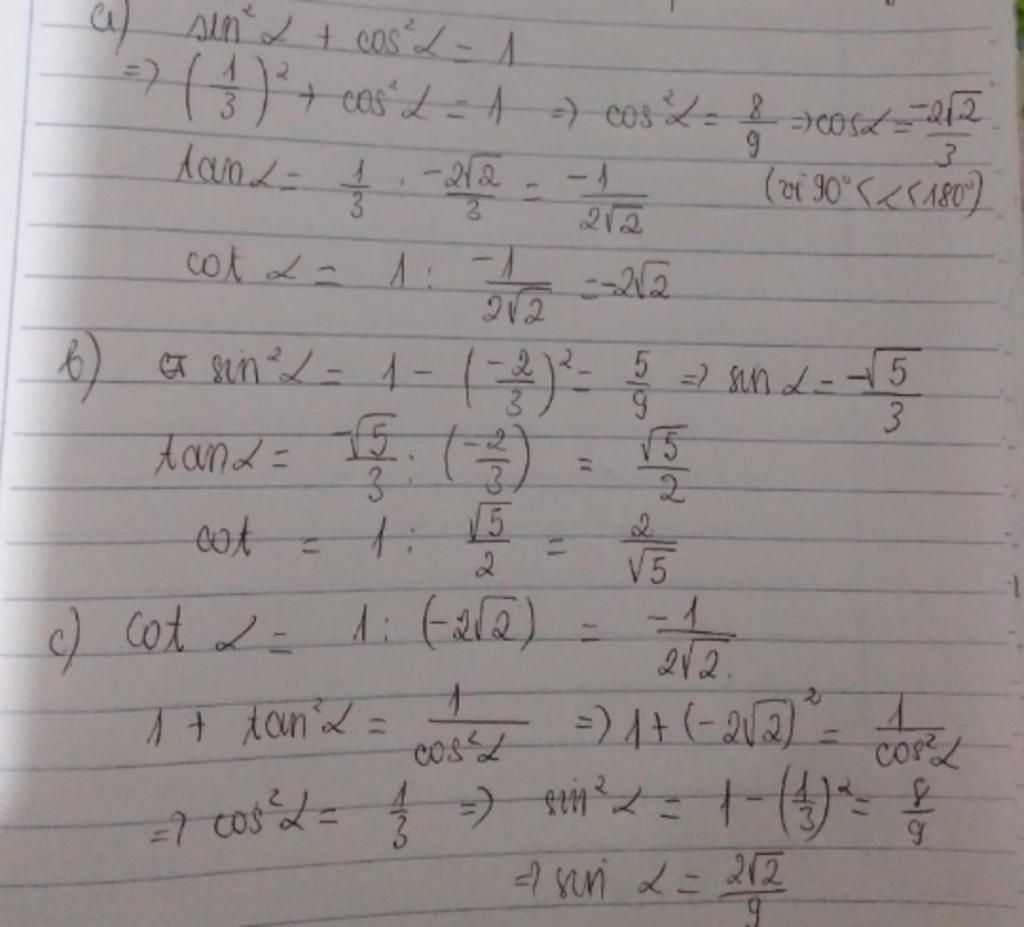 a) sin²α + cos²α = 1
=> (1/3)² + cos²α = 1 => cos²α = 8/9 => cosα = -2√2/3
tanα = 1/3 . -2√2/3 = -1/2√2 (vì 90° < α < 180°)
cot α = 1 : -1/2√2 = -2√2
b) sin²α = 1 - (-2/3)² = 5/9 => sin α = -√5/3
tanα = -√5/3 : (-2/3) = √5/2
cot = 1 : √5/2 = 2/√5
c) cot α = 1 : (-2√2) = -1/2√2.
1 + tan²α = 1/cos²α => 1 + (-2√2)² = 1/cos²α
=> cos²α = 1/3 => sin²α = 1 - (1/3)² = 8/9
=> sin α = 2√2/9